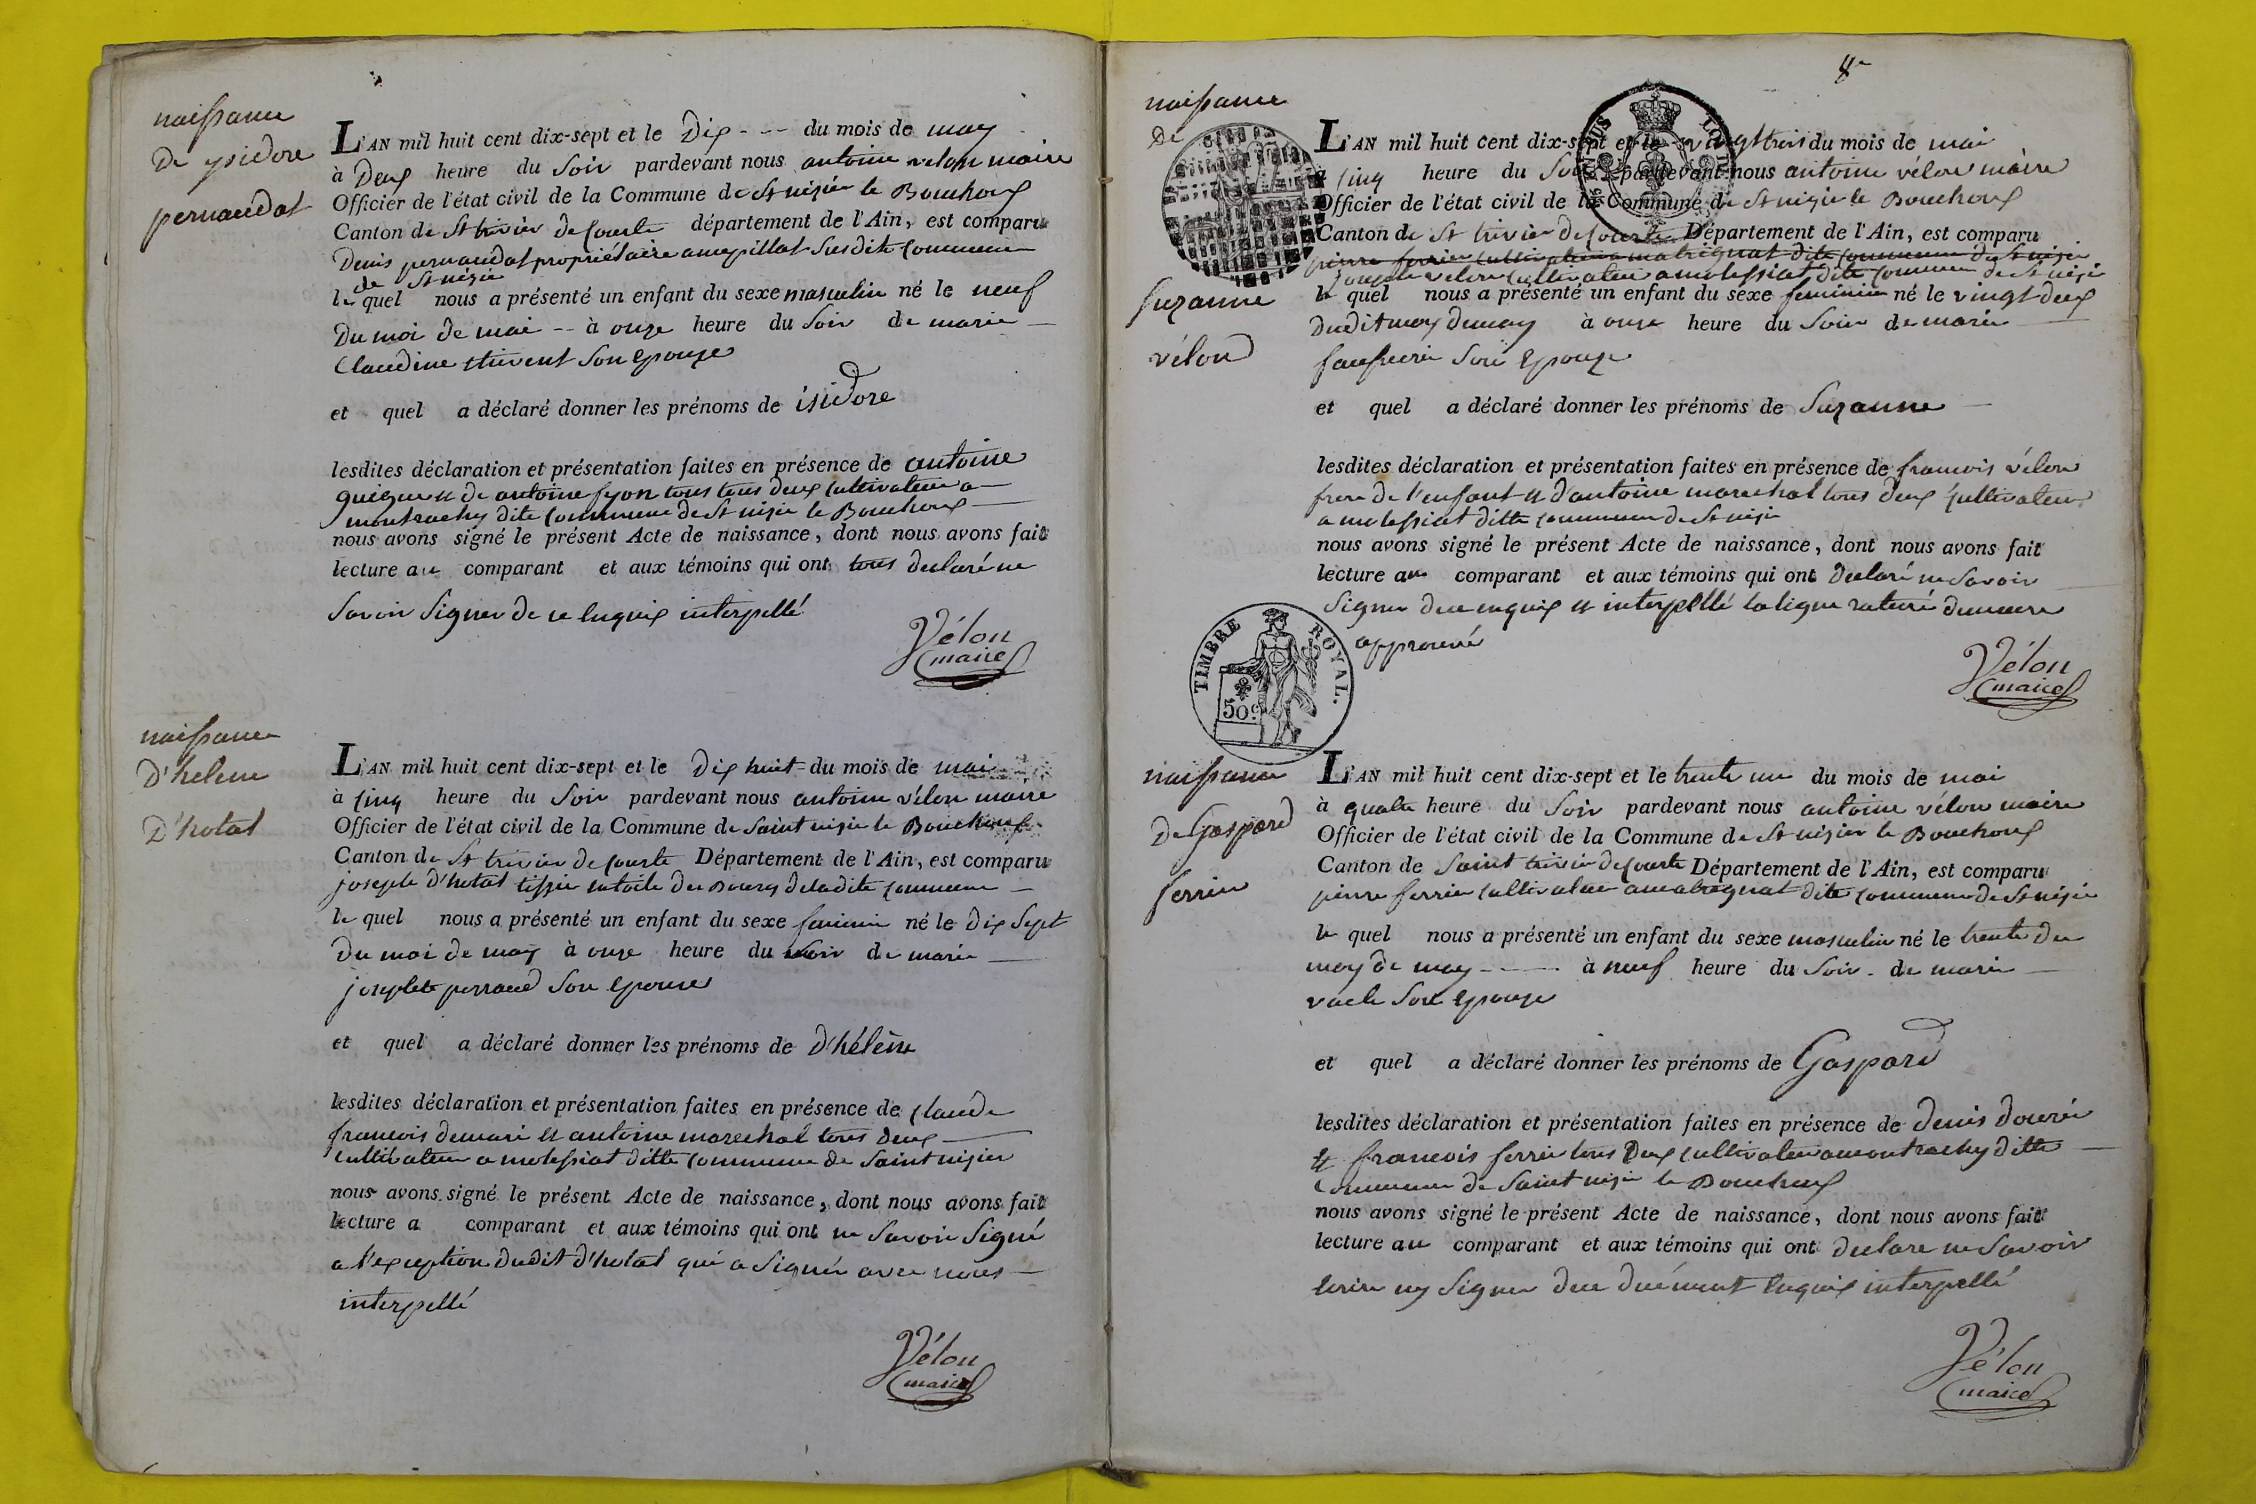 naissance
de ysidore
pernaudat
L'AN mil huit cent dix-sept et le Dix --- du mois de may
à Deux heure du Soir pardevant nous antoine vélon maire
Officier de l'état civil de la Commune de St nizier le Bouchoux
Canton de St trivier de Courte département de l'Ain, est comparu
Denis pernaudat propriétaire a Susdite Commune
de St nizier
le quel nous a présenté un enfant du sexe masculin né le neuf
Du moi de mai -- à onze heure du Soir de marie
Claudine Son epouze
et quel a déclaré donner les prénoms de isidore
lesdites déclaration et présentation faites en présence de antoine
et de antoine tous deux cultivateur a
montrachy dite commune de St nizier le Bouchoux
nous avons signé le présent Acte de naissance, dont nous avons fait
lecture au comparant et aux témoins qui ont tous declaré ne
Savoir Signer de ce enquis interpellé
Vélon
maire
naissance
D'helene
D'hotal
L'AN mil huit cent dix-sept et le Dix huit du mois de mai
à Cinq heure du Soir pardevant nous antoine vélon maire
Officier de l'état civil de la Commune de Saint nizier le Bouchoux
Canton de St trivier de Courte Département de l'Ain, est comparu
joseph D'hotal tissier en toile du Bourg de ladite Commune
le quel nous a présenté un enfant du sexe feminin né le Dix Sept
Du moi de may à onze heure du Soir de marie
josephte perraud Son epouse
et quel a déclaré donner les prénoms de D'hélène
lesdites déclaration et présentation faites en présence de Claude
francois et antoine marechal tous deux
Cultivateur a molessiat ditte commune de Saint nizier
nous avons signé le présent Acte de naissance, dont nous avons fait
lecture a comparant et aux témoins qui ont ne Savoir Signé
a l'exception dudit D'hotal qui a Signér avec nous
interpellé
Vélon
maire
8e
naissance
De
Suzanne
vélon
L'AN mil huit cent dix-sept et le vingt trois du mois de mai
à Cinq heure du Soir pardevant nous antoine vélon maire
Officier de l'état civil de la Commune de St nizier le Bouchoux
Canton de St trivier de Courte Département de l'Ain, est comparu
pierre ferrier cultivateur a matrignat dite commune de St nizier
joseph vélon cultivateur a molessiat dite commune de St nizier
le quel nous a présenté un enfant du sexe feminin né le vingt deux
Dudit moy de may à onze heure du Soir de marie
Son epouze
et quel a déclaré donner les prénoms de Suzanne
lesdites déclaration et présentation faites en présence de francois vélon
frere de l'enfant et d'antoine marechal tous deux Cultivateur
a molessiat ditte commune de St nizier
nous avons signé le présent Acte de naissance, dont nous avons fait
lecture au comparant et aux témoins qui ont declaré ne Savoir
Signer de ce enquis et interpellé la ligne raturé demeure
approuvé
TIMBRE ROYAL.
50c
Vélon
maire
naissance
De Gaspard
ferrier
L'AN mil huit cent dix-sept et le trente un du mois de mai
à quatre heure du Soir pardevant nous antoine vélon maire
Officier de l'état civil de la Commune de St nizier le Bouchoux
Canton de Saint trivier de Courte Département de l'Ain, est comparu
pierre ferrier cultivateur a matrignat dite commune de St nizier
le quel nous a présenté un enfant du sexe masculin né le trente du
moy de may ---- à neuf heure du Soir de marie
Son epouze
et quel a déclaré donner les prénoms de Gaspard
lesdites déclaration et présentation faites en présence de Denis
et francois ferrier tous Deux cultivateur a montrachy ditte
Commune de Saint nizier le Bouchoux
nous avons signé le présent Acte de naissance, dont nous avons fait
lecture au comparant et aux témoins qui ont declare ne Savoir
Ecrire ny Signer de ce duément enquis interpellé
Vélon
maire